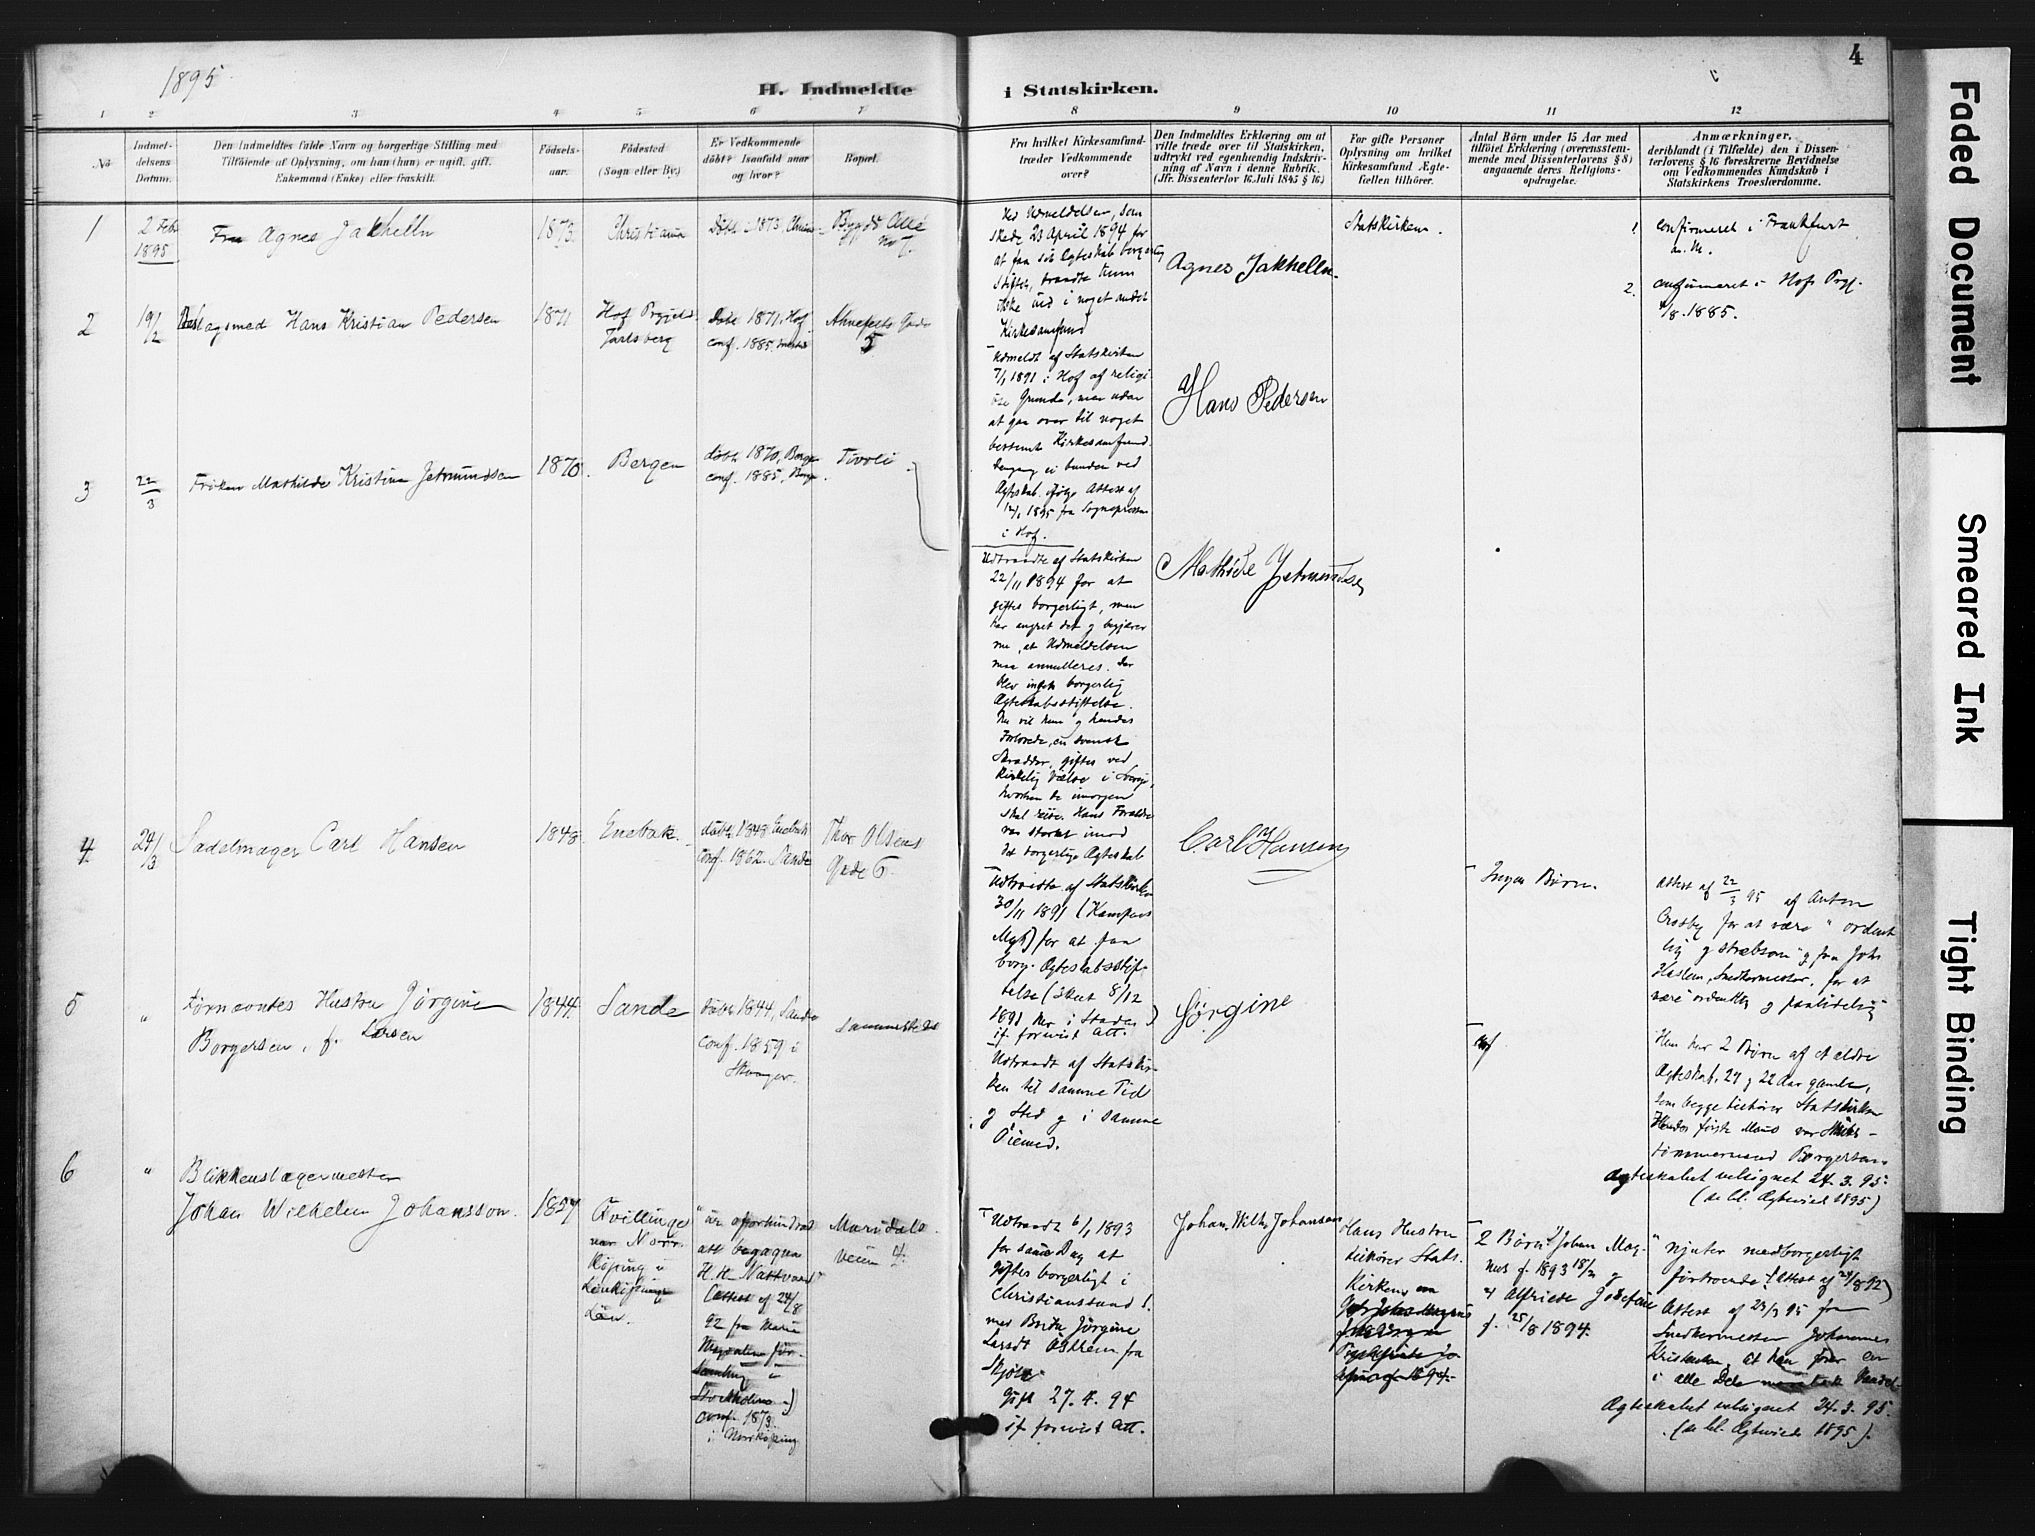 1895
H. Indmeldte i Statskirken.
4
1 2 3 4 5 6 7 8 9 10 11 12
No
Indmel-
delsens
Datum.
Den Indmeldtes fulde Navn og borgerlige Stilling med
Tilföiende af Oplysning, om han (hun) er ugift, gift,
Enkemand (Enke) eller fraskilt.
Födsels-
aar.
Födested
(Sogn eller By.)
Er Vedkommende
döbt? Isaafald naar
og hvor?
Bopæl.
Fra hvilket Kirkesamfund
træder Vedkommende
over?
Den Indmeldtes Erklæring om at
ville træde over til Statskirken,
udtrykt ved egenhændig Indskriv-
ning af Navn i denne Rubrik.
(Jfr. Dissenterlov 16. Juli 1845 § 16)
For gifte Personer
Oplysning om hvilket
Kirkesamfund Ægte-
fællen tilhörer.
Antal Börn under 15 Aar med
tilföiet Erklæring (overensstem-
mende med Dissenterlovens § 8)
angaaende deres Religions-
opdragelse.
Anmærkninger,
deriblandt (i Tilfælde) den i Dissen-
terlovens § 16 foreskrevne Bevidnelse
om Vedkommendes Kundskab i
Statskirkens Troeslærdomme.
1
2 Feb
1895
Fru Agnes Jakhelln
1873.
Christiania
Döbt i 1873, Christ
Bygdö Allé
no 7.
Ved Udmeldelsen, som
skede 23 April 1894 for
at faa sit Ægteskab borgerlig
stiftet, traadte hun
ikke ind i noget andet
Kirkesamfund
Agnes Jakhelln.
Statskirken.
1. confirmeret i Frankfurt
a. M.
2
19/2
Beslagsmed Hans Kristian Pedersen
1871
Hof Prgjeld
Jarlsberg
Döbt 1871, Hof
conf. 1885,
Ahnefelts Gade
5
Udmeldt af Statskirken
7/1 1891 i Hof af religi
öse Grunde, men uden
at gaa over til noget
bestemt Kirkesamfund.
Dengang ei bunden ved
Ægteskab ifölge Attest af
12/1 1895 fra Sognepresten
i Hof.
Hans Pedersen
2. confirmeret i Hofs Prgj.
/8. 1885.
3
22/3
Fröken Mathilde Kristine Jetmundsen
1870.
Bergen
döbt 1870, Bergen
conf. 1885, Berge
Tivoli.
Udtraadte af Statskirken
22/11 1894 for at
giftes borgerligt, men
har angret det og begjærer
nu, at Udmeldelsen
maa annulleres. Der
blev ingen borgerlig
Ægteskabsstiftelse.
Nu vil hun og hendes
Forlovede, en svensk
Skrædder, giftes ved
kirkelig Vielse i Sverige,
hvorhen de imorgen
skal reise. Hans Forældre
var stærkt imod
det borgerlige Ægteskab
Mathilde Jetmundsen
4
24/3
Sadelmager Carl Hansen
1848.
Enebak.
döbt 1848 Enebak
conf. 1862. Sande
Thor Olsens
Gade 6.
Udtraadte af Statskirken
30/11 1891 (Kampens
Mgh) for at faa
borg. Ægteskabsstif-
telse (skeet 8/12
1891 her i Staden)
if. forevist Att.
Carl Hansen
Ingen Börn.
Attest af 22/3 95 af Anton
Crosby for at være "ordent
lig og stræbsom" og fra Johs
Haslem, Snedkermester, for at
være "ordentlig og paalidelig"
5
"
Tömmermandes Hustru Jörgine
Borgersen, f. Larsen
1844.
Sande
döbt 1844, Sande
conf. 1859 i
Skoger.
sammesteds
Udtraadt af Statskir-
ken til samme Tid
og Sted og i samme
Öiemed.
Jörgine
Hun har 2 Börn af et ældre
Ægteskab, 27 og 22 Aar gamle,
som begge tilhörer Statskirken
Hendes förste Mand var
tömmermand Borgersen.
Ægteskabet velsignet 24. 3. 95.
(se bl. Ægteviede 1895)
6
"
Blikkenslagermester
Johan Wilhelm Johansson.
1857
Qvillinge
nær Norr-
köping i
Linköpings
län.
"är oförhindrad
att begagna
H. H. Nattvard"
(Attest af 24/8
92 fra Maria
Magdalena för-
samling i
Stockholm.)
conf. 1873.
i Norrköping
Maridals-
veien 4.
Udtraadt 6/1 1893
for samme Dag at
giftes borgerligt i
Christianssund S.
med Berthe Jörgine
Larsdt Östrem fra
Skjold
gift 27. 4. 94
if. forevist Att.
Johan. Wilh. Johansen
Hans Hustru
tilhörer Stats-
kirken
2 Börn: Johan Mag-
nus f. 1893 18/ og
Alfriede Josefine
f. 25/8 1894.
"njuter medborgerligt
förtroende" (Attest af 24/8 92)
Attest af 23/3 95 fra
Snedkermester Johannes
Kristensen, at han förer en
i alle Dele Vandel
Ægteskabet velsignet 24. 3. 95.
(se bl. Ægteviede 1895).
Faded Document
Smeared Ink
Tight Binding